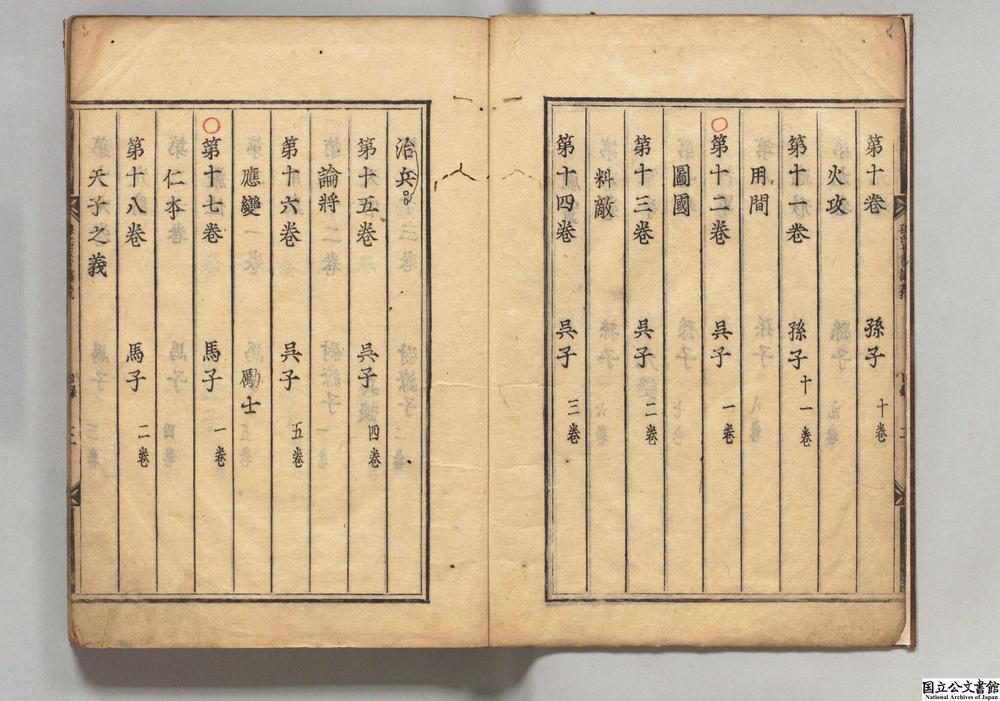 第十卷 孫子 十卷
火攻
第十一卷 孫子 十一卷
用間
第十二卷 吳子 一卷
圖國
第十三卷 吳子 二卷
料敵
第十四卷 吳子 三卷
治兵
第十五卷 吳子 四卷
論將
第十六卷 吳子 五卷
應變 勵士
第十七卷 馬子 一卷
仁本
第十八卷 馬子 二卷
天子之義
国立公文書館
National Archives of Japan